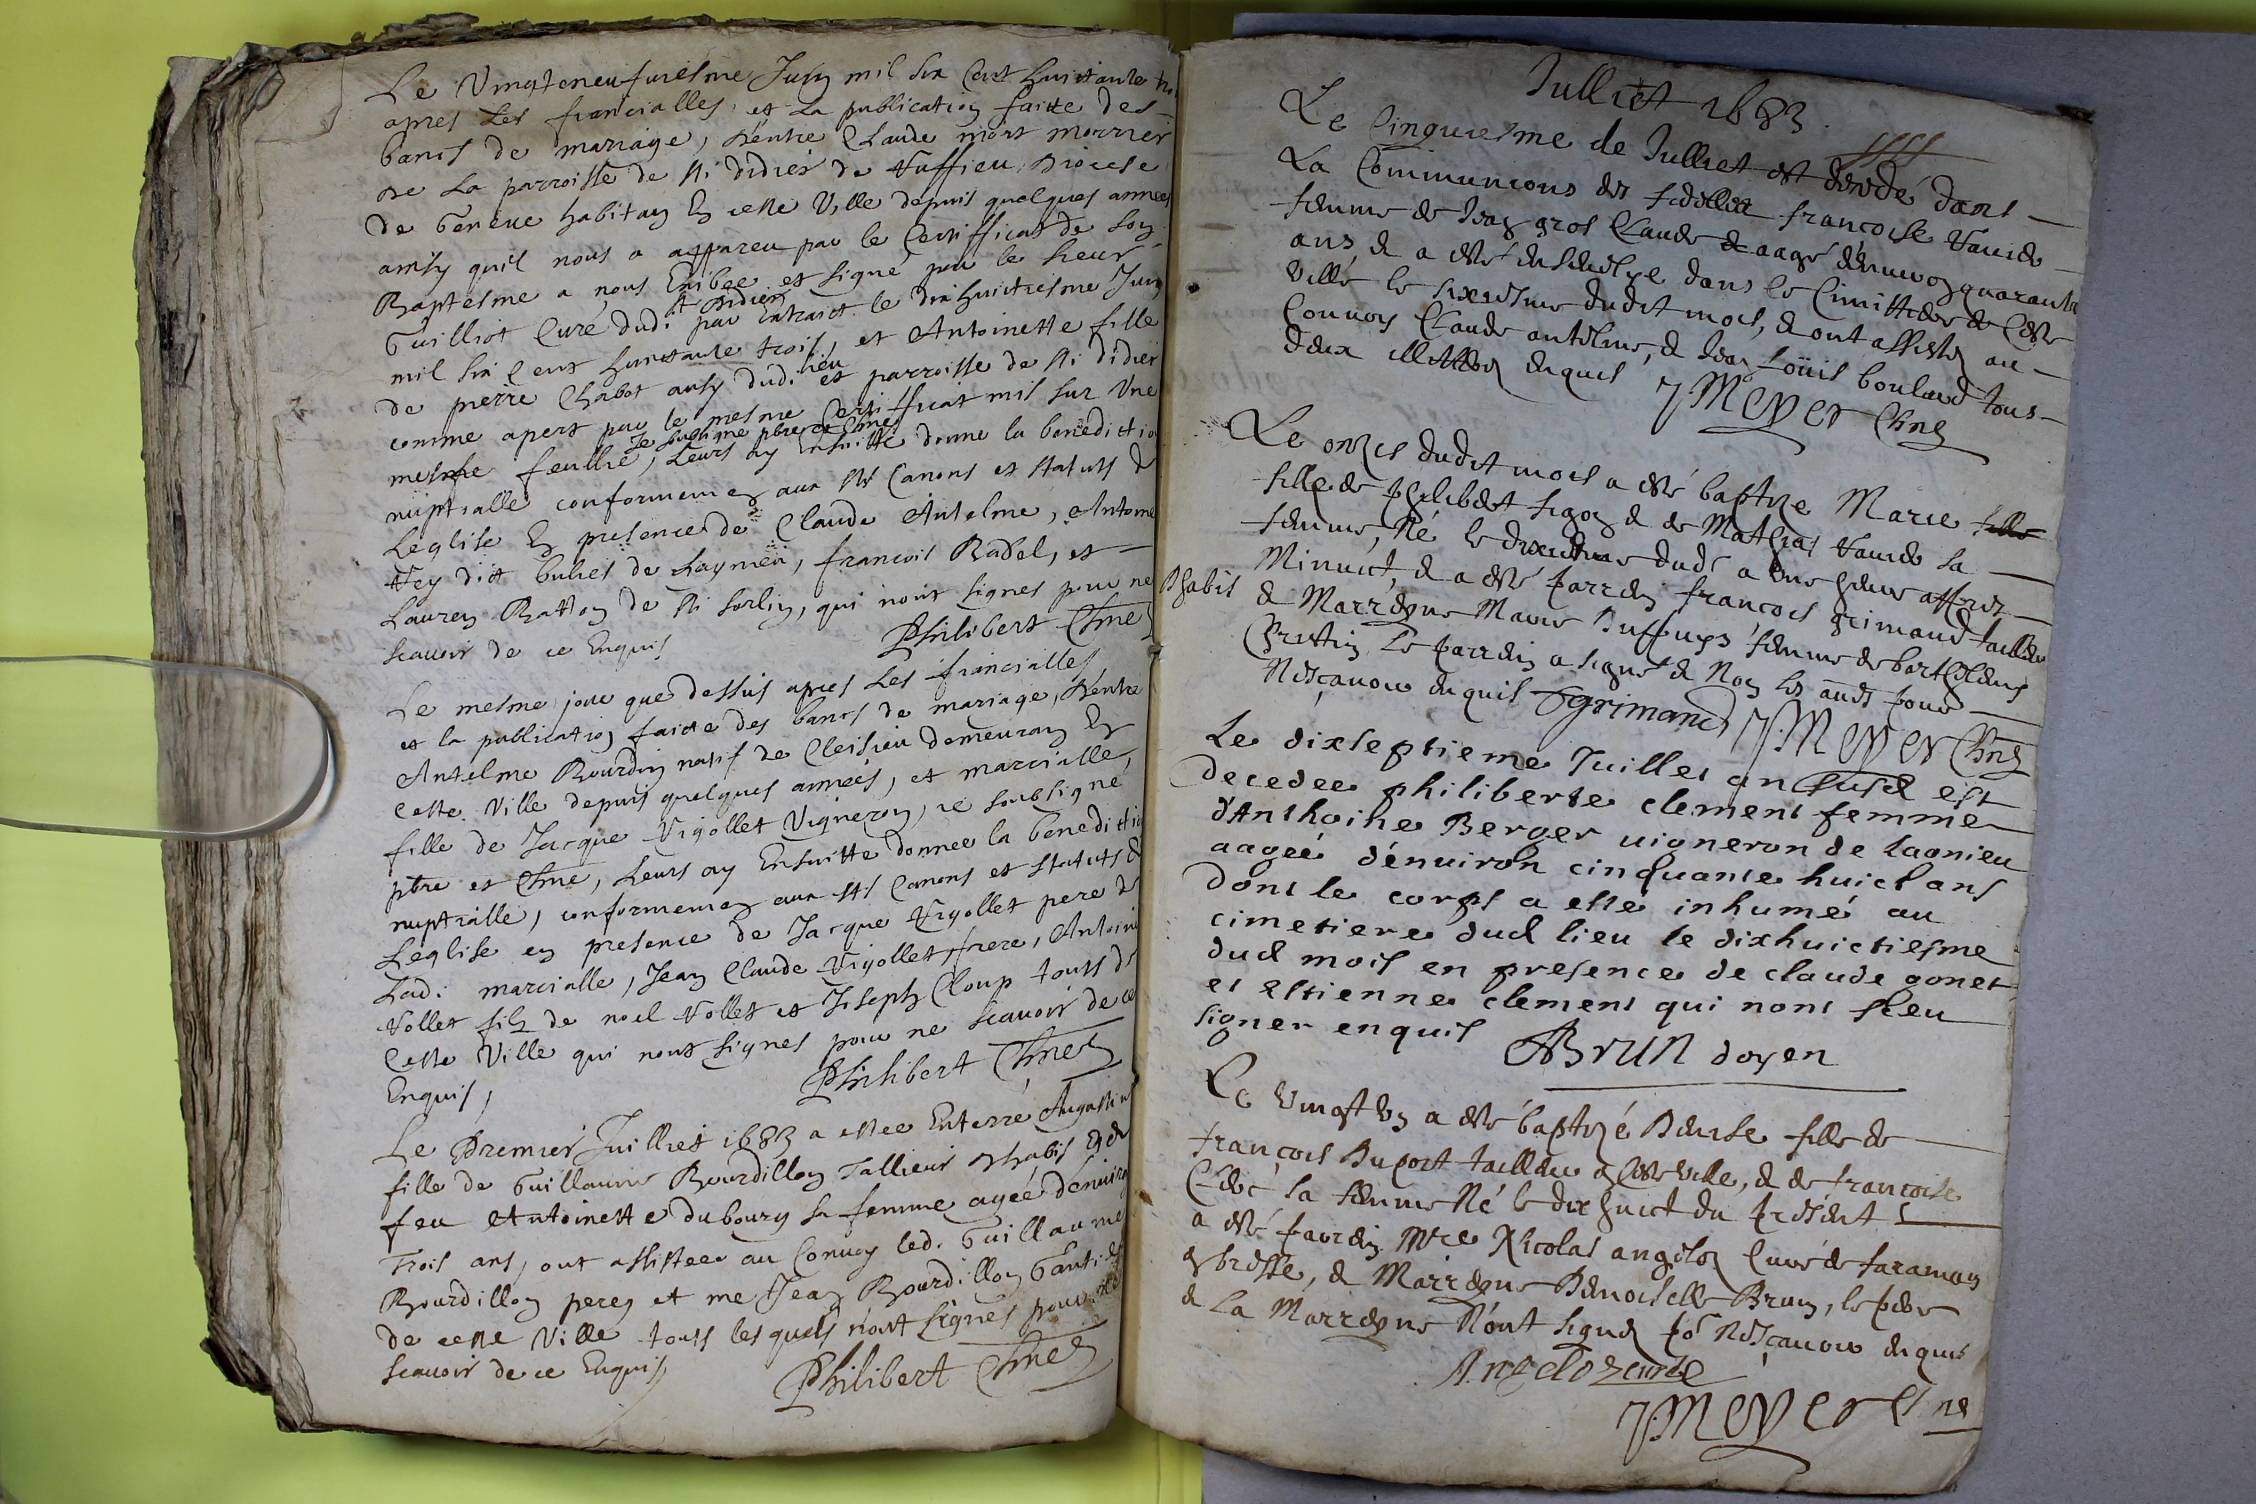 Le Vingteneufuiesme Juin mil six Cent huictante
apres Les fiancialles, et La publication faitte des
bancs de mariage, dentre Claude mort
de La parroisse de St didier de diocese
de Geneue habitan En cette Ville depuis quelques annees
ainsy quil nous a appareu par le Certifficat de son
Baptesme a nous Exibee et signé par le sieur
Guilliot Curé dud. St Didier par Extraict le dix huictiesme Juin
mil six Cent huictante trois, et Antoinette fille
de pierre Chabot ausy dud. lieu et parroisse de St didier
comme apert par le mesme Certifficat mis sur Une
mesme feullie, Je soubsigne pbre et Chne Leurs ay Ensuitte donne la benediction
nuptialle conformement aux Sts Canons et statuts de
Leglise En presence de Claude Antelme, Antoine
dict de Laynieu, francois Radel, et
Lauren Ratton de St Sorlin, qui nont signes pour ne
scauoir de ce Enquis
Philibert Chne
Le mesme jour que dessus apres Les fiancialles
et la publication faitte des bancs de mariage, dentre
Antelme Bourdin natif de Cleisieu demeuran En
Cette Ville depuis quelques années, et marcialle,
fille de Jacque Vigollet Vigneron, je soubsigne
pbre et Chne, Leurs ay Ensuitte donnee la benediction
nuptialle, conformement aux Sts Canons et statuts de
Leglise en presence de Jacque Vigollet pere de
Lad. marcialle, Jean Claude Vigollet frere, Antoine
Vollet filz de noel Vollet et Joseph Cloup touts de
Cette Ville qui nont signes pour ne scauoir de ce
Enquis,
Philibert Chne
Le Premier Juilliet 1683 a estee Enterré
fille de Guillaume Bourdillon Tallieur Dhabis Et de
feu Antoinette dubourg sa femme agée denuiron
Trois ans, ont assistee au Conuoy led. Guillaume
Bourdillon pere et me Jean Bourdillon
de cette Ville touts lesquels nont signes pour ne
scauoir de ce Enquis
Philibert Chne
Julliet 1683
Le Cinquiesme de Julliet est decedé dans
La Communions des fidelles francoise
femme de Jean gros Claude aagé denuiron quarante
ans & a esté enseuelye dans le Cimittiere de Ceste
Ville le sixiesme dudit mois, & ont assistez au
Conuoy Claude antelme, & Jean Loüis boulard tous
deux enquis J Meyer Chne
Le onzies dudit mois a esté baptize Marie fille
fille de philibert figon & de Mathias sa
femme, Né le dixiesme dudt a Une heure apprez
Minuict, & a esté parrein françois grimand tailleur
Dhabis
& Marreyne Marie Duffuys femme de barthelemy
Chrestin. Le parrein a signé & Non les audts pour
Nesçauoir enquis Fgrimand J. Meyer Chne
Le dixseptieme Juillet an susd est
decedee philiberte clement femme
d'Anthoine Berger uigneron de lagnieu
aagée d'enuiron cinquante huict ans
dont le corps a esté inhumé au
cimetiere dud lieu le dixhuictiesme
dud mois en presence de claude gonet
et estienne clement qui nont sceu
signer enquis
ABrun doyen
Le Vingt Un a esté baptizé Denise fille de
françois Duport tailleur en Ceste Ville, & de francoise
sa femme Né le dix huict du présent
a esté parrein Mre Nicolas angelos Curé de faraman
en bresse, & Marreyne Demoiselle Brun, le pere
& La Marreyne N'ont signez po Nesçauoir enquis
Angeloz curé
J. Meyer Chne